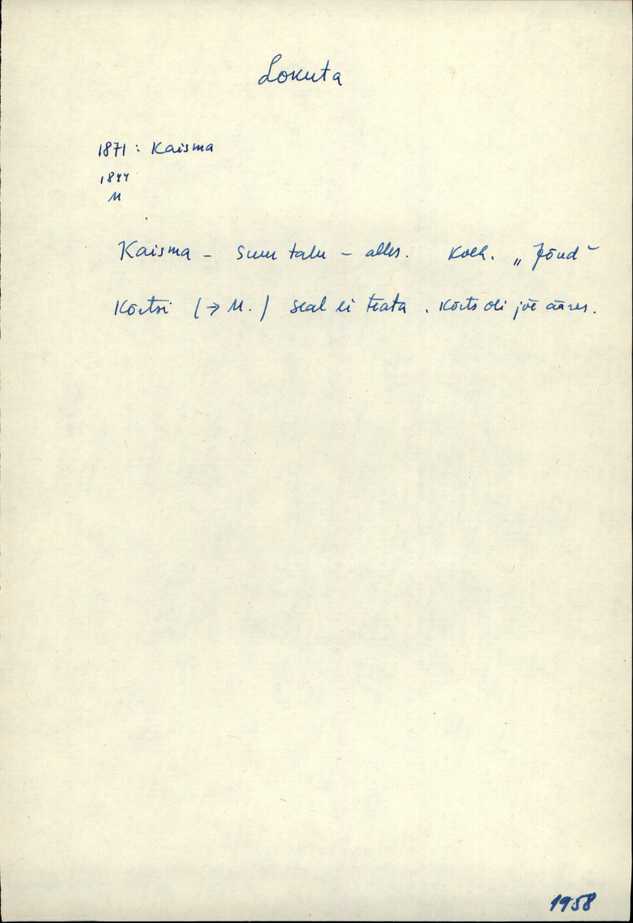 Lokuta
1871 : Kaisma
1844
M
Kaisma – Suur talu – alles. Kolh. „Jõud"
Kõrtsi (→ M.) seal ei teata. Kõrts oli jõe ääres.
1958